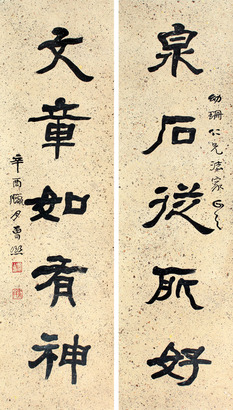 泉石從所好
幼珊仁兄法家正之
文章如有神
辛酉臘月曾熙